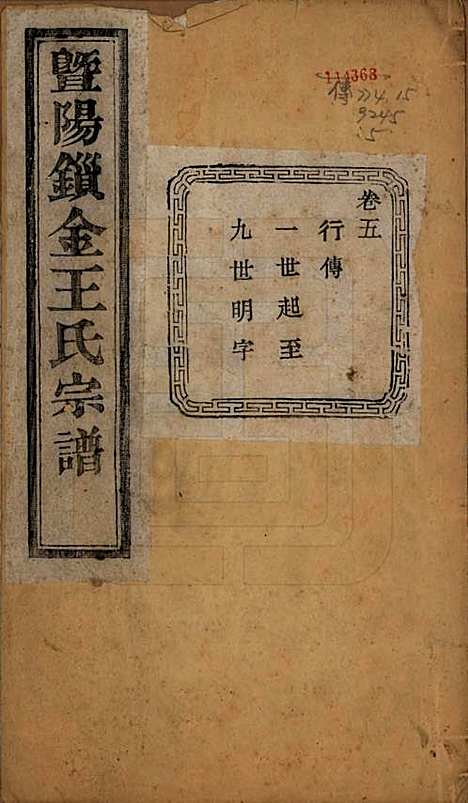 暨陽鎻金王氏宗譜
卷五
行傳
一世起至
九世明字
114363
傳 774.15
9245
:5